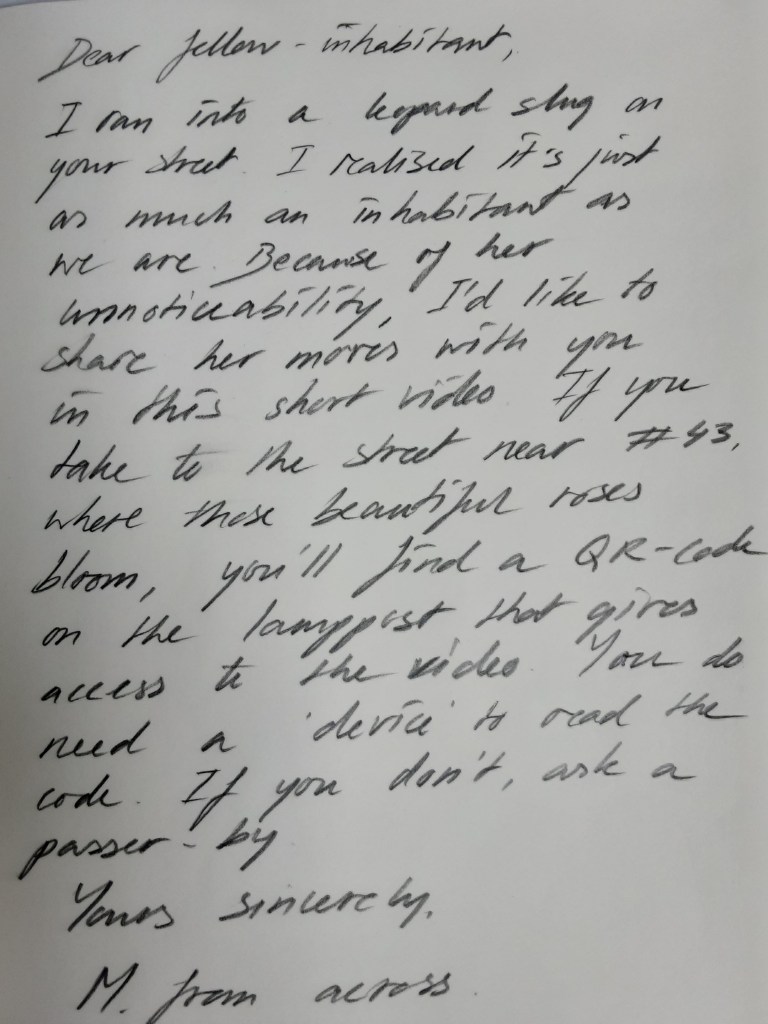 Dear fellow-inhabitant,
I ran into a leopard slug on
your street. I realised it's just
as much an inhabitant as
we are. Because of her
unnoticeability, I'd like to
share her moves with you
in this short video. If you
take to the street near #43,
where those beautiful roses
bloom, you'll find a QR-code
on the lamppost that gives
access to the video. You do
need a 'device' to read the
code. If you don't, ask a
passer-by
Yours sincerely,
M. from across.